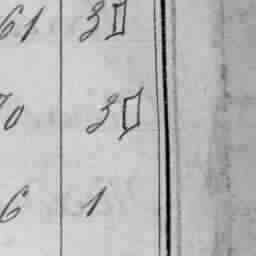 61 30
70 30
6 1